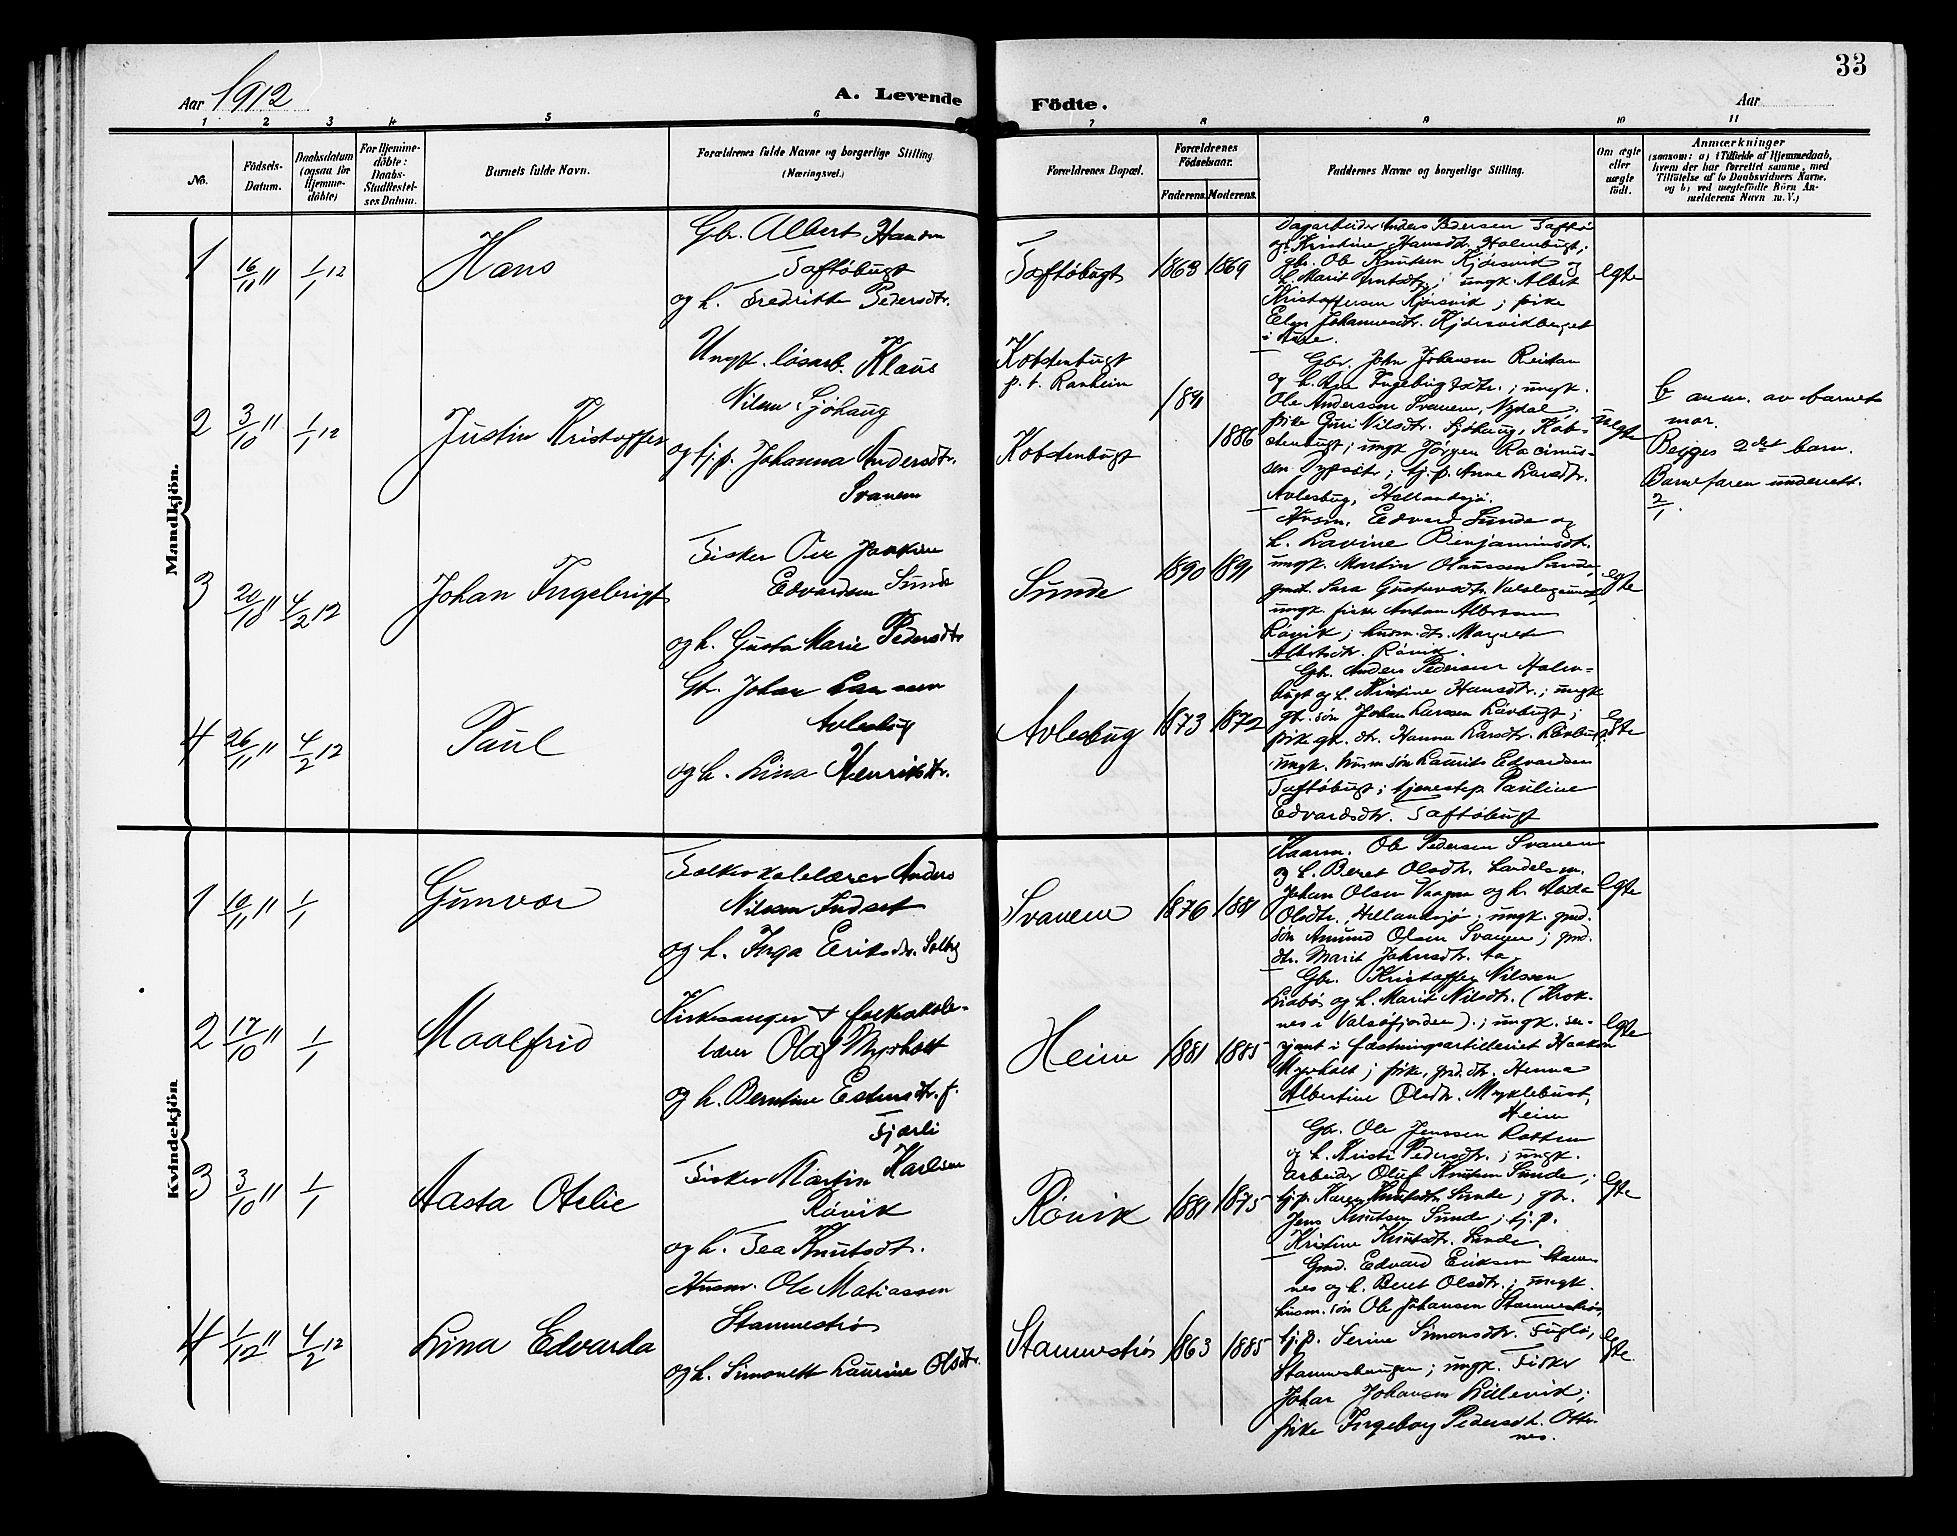 33
Aar 1912
A. Levende Födte.
Aar
1 2 3 4 5 6 7 8 9 10 11
No.
Födsels-Datum.
Daabsdatum (ogsaa for Hjemme-döbte)
For Hjemme-döbte: Daabs-Stadfæstel-ses Datum.
Barnets fulde Navn.
Forældrenes fulde Navne og borgerlige Stilling
(Næringsvei.)
Forældrenes Bopæl.
Forældrenes Födselsaar.
Faderens. Moderens.
Faddernes Navne og borgerlige Stilling.
Om ægte eller uægte født.
Anmærkninger
(saasom: a) i Tilfælde af Hjemmedaab,
hvem der har forrettet samme, med
Tilföielse af to Daabsvidners Navne,
og b) ved uægtefödte Börn An-
melderens Navn m. V.)
Mandkjön.
1 16/11 11 1/1 12
Hans
Gbr. Albert Hansen
Taftöbugt
og h. Fredrikke Pedersdtr.
Taftöbugt
1863 1869
Dagarbeider Anders Pedersen Taftö
og Kristine Hansdtr. Holenbugt;
gbr. Ole Knutsen Kjörsvik og
h. Marit Arntsdtr; ungk. Albert
Kristoffersen Kjörsvik; pike
Elen Johannesdtr. Kjörsvidberget
i Aure.
egte
2 3/10 11 1/1 12
Justin Kristoffer
Ungk. løsarb. Klaus
Nilsen Sjöhaug
og tj.p. Johanna Andersdtr.
Svanem
Kobstenbugt
p. t. Ranheim
Kobstenbugt
1891
1886
Gbr. John Johansen Reitan
og h. Ane Ingebrigtsdtr.; ungk.
Ole Anderssen Svanem, Nydal;
pike Guri Nilsdtr. Sjöhaug, Kob-
stenbugt; ungk. Jörgen Rasmus-
sen; tj.p. Anne Larsdtr.
Avlesbug, Hellandsjö.
uegte
b anm. av barnets
mor.
Begges 2det barn.
Barnefaren underrett.
2/1.
3 20/10 11 4/2 12
Johan Ingebrigt
Fisker
Edvardsen Sunde
og h. Gusta Marie Pedersdtr
Sunde
1890 1891
Husm. Edvard Sunde og
h. Lavine Benjaminsdtr.
ungk. Martin Olaussen Sunde,
gmd. Sara Gustavsdtr.
ungk. fisker Anton Albertsen
Rövik; husm.dtr. Margret
Albertsdtr. Rövik.
egte
4 26/11 11 4/2 12
Paul
Gbr. Johan Larssen
Avlesbug
og h. Lina Henriksdtr.
Avlesbug
1873 1872
Gbr. Anders Pedersen Holen-
bugt og h. Kristine Hansdtr.; ungk.
gbr. sön Johan Larssen Lövbugt;
pike gbr. dtr. Hanna Larsdtr. Lövbugt
ungk. husm. sön Laurits Edvardsen
Taftöbugt; tjenestep. Pauline
Edvardsdtr. Taftöbugt
egte
Kvindekjön
1 10/11 11 1/1
Gunvor
Folkeskolelærer Anders
Nilssen Indset
og h. Inga Eriksdtr. Solberg
Svanem
1876 1881
Kaarm. Ole Pedersen Svanem
og h. Beret Olsdtr. Landhandm.
Johan Olsen Vaagan og h.
Olsdtr. Hellandsjö; ungk. gmd.
sön Amund Olsen Svanem; gmd.
dtr. Marit Johnsdtr.
egte
2 17/10 11 1/1
Maalfrid
Kirkesanger & folkeskole-
lærer Olaf Myrholt
og h. Berntine Estensdtr. f.
Fjærli
Heim
1881 1885
Gbr. Kristoffer Nilssen
Liabö og h. Marit Nilsdtr. (Krok-
nes i Valsöfjorden).; ungk. ser-
sjant i fæstningsartilleriet Haakon
Myrholt; pike, gmd.dtr. Henna
Albertine Olsdtr. Myklebust,
Heim
egte
3 3/10 11 1/1
Aasta Otelie
Fisker Martin Karlsen
Rövik
og h. Tea Knutsdtr.
Rövik
1881 1875
Gbr. Ole Jenssen Rotten
og h. Kristi Pedersdtr.; ungk.
arbeider Oluf Knutsen Sunde;
tj.p. Karen Knutsdtr. Sunde; gbr.
Jens Knutsen Sunde; tj.p.
Kristine Knutsdtr. Sunde.
egte
4 1/12 11 4/2 12
Lina Edvarda
Husm. Ole Matiassen
Stamnestrø
og h. Simonette Laurine Olsdtr.
Stamnestrø
1863 1885
Gmd. Edvard Eriksen Stam-
nes og h. Beret Olsdtr.; ungk.
husm. sön Ole Johansen Stamnestrø;
tj.p. Serine Simonsdtr. Fuglö,
Stamneshaugen; ungk. Fisker
Johan Johansen Lillevik;
pike Ingeborg Pedersdtr. Otter-
nes.
egte